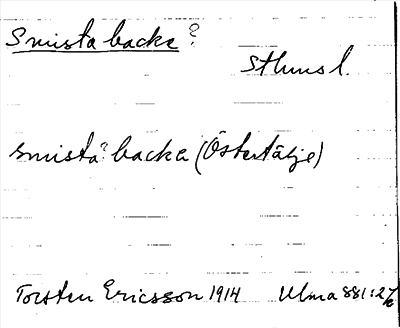 Smista backe?
Sthms l.
Smista? backa (Östertälje)
Torsten Ericsson 1914 Ulma 881:2